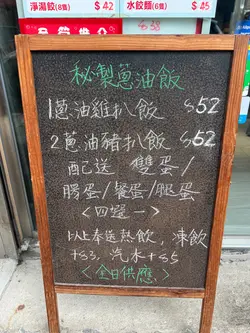 淨湯餃(8隻) $42
水餃麵(6隻) $45
秘製蔥油飯
1蔥油雞扒飯 $52
2蔥油豬扒飯 $52
配送 雙蛋/
腸蛋/餐蛋/腿蛋
<四選一>
以上奉送熱飲,凍飲
+$3, 汽水+$5
<全日供應>